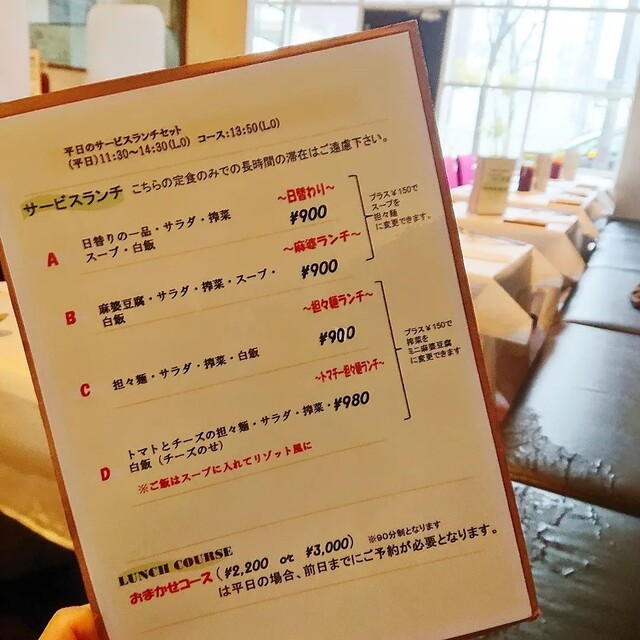 平日のサービスランチセット
(平日)11:30〜14:30(L.O) コース:13:50(L.O)
サービスランチ こちらの定食のみでの長時間の滞在はご遠慮下さい。
〜日替わり〜
A 日替りの一品・サラダ・搾菜 ¥900
スープ・白飯
プラス¥150で
スープを
担々麺
に変更できます。
〜麻婆ランチ〜
B 麻婆豆腐・サラダ・搾菜・スープ・ ¥900
白飯
〜担々麺ランチ〜
C 担々麺・サラダ・搾菜・白飯 ¥900
プラス¥150で
搾菜を
ミニ麻婆豆腐
に変更できます
〜トマチー担々麺ランチ〜
D トマトとチーズの担々麺・サラダ・搾菜・¥980
白飯(チーズのせ)
※ご飯はスープに入れてリゾット風に
LUNCH COURSE
おまかせコース (¥2,200 or ¥3,000) ※90分制となります
は平日の場合、前日までにご予約が必要となります。